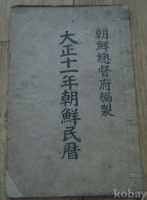 朝鮮總督府編製
大正十一年朝鮮民曆
kobay